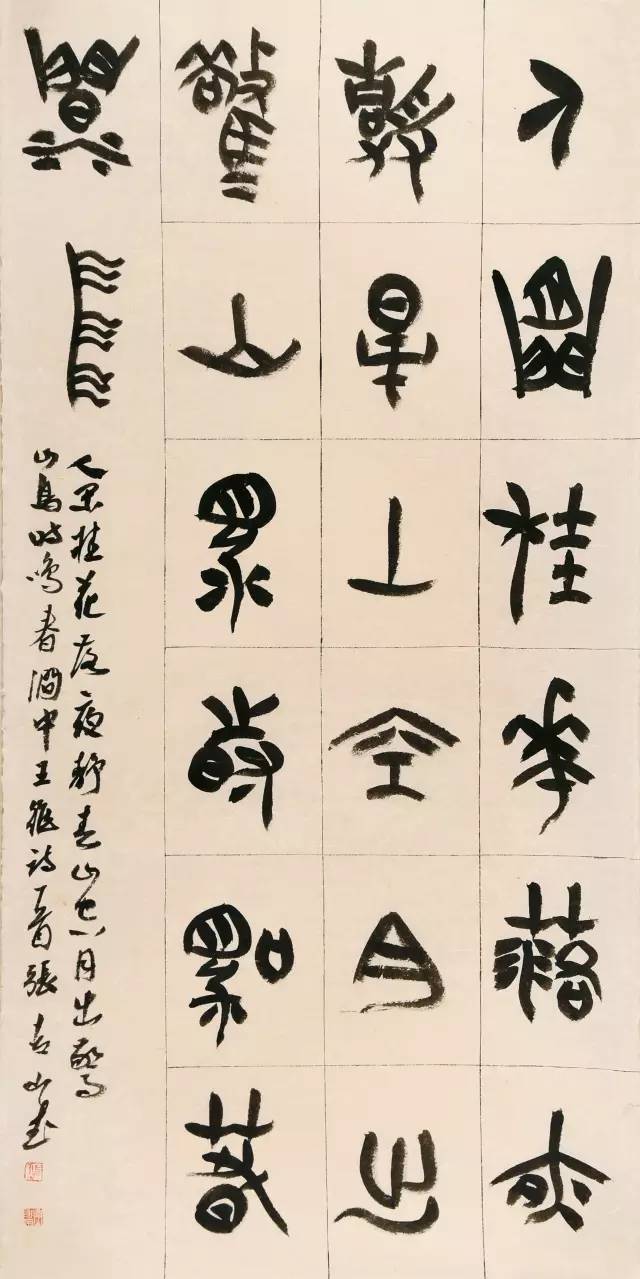 人閒桂華落夜
靜春山空月出
驚山鳥時鳴春
澗中
人閑桂花落夜靜春山空月出驚
山鳥時鳴春澗中王維詩一首張山書